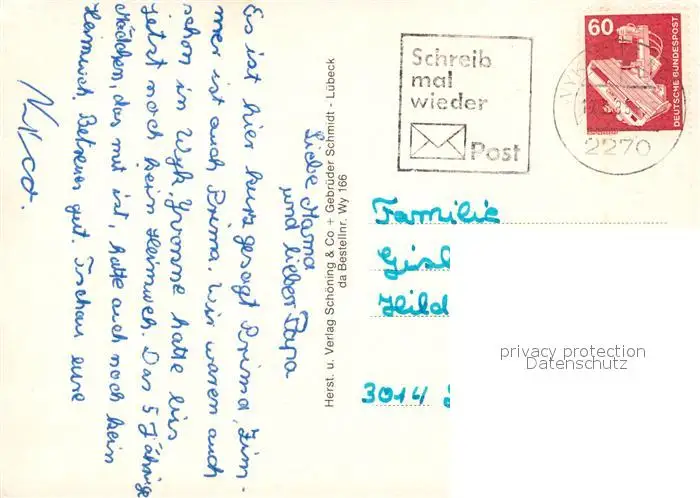 Liebe Mama
und lieber Papa
Es ist hier kurz gesagt Prima, Zim-
mer ist auch Prima. Wir waren auch
schon in Wyk. Yvonne hatte bis
jetzt noch kein Heimweh. Das 5 Jährige
Mädchen, das mit ist, hatte auch noch kein
Heimweh. Betreuer gut. Tschau eure
Herst. u. Verlag Schöning & Co + Gebrüder Schmidt - Lübeck
da Bestellnr. Wy 166
Schreib
mal
wieder
Post
60
DEUTSCHE BUNDESPOST
2270
Familie
3014
privacy protection
Datenschutz